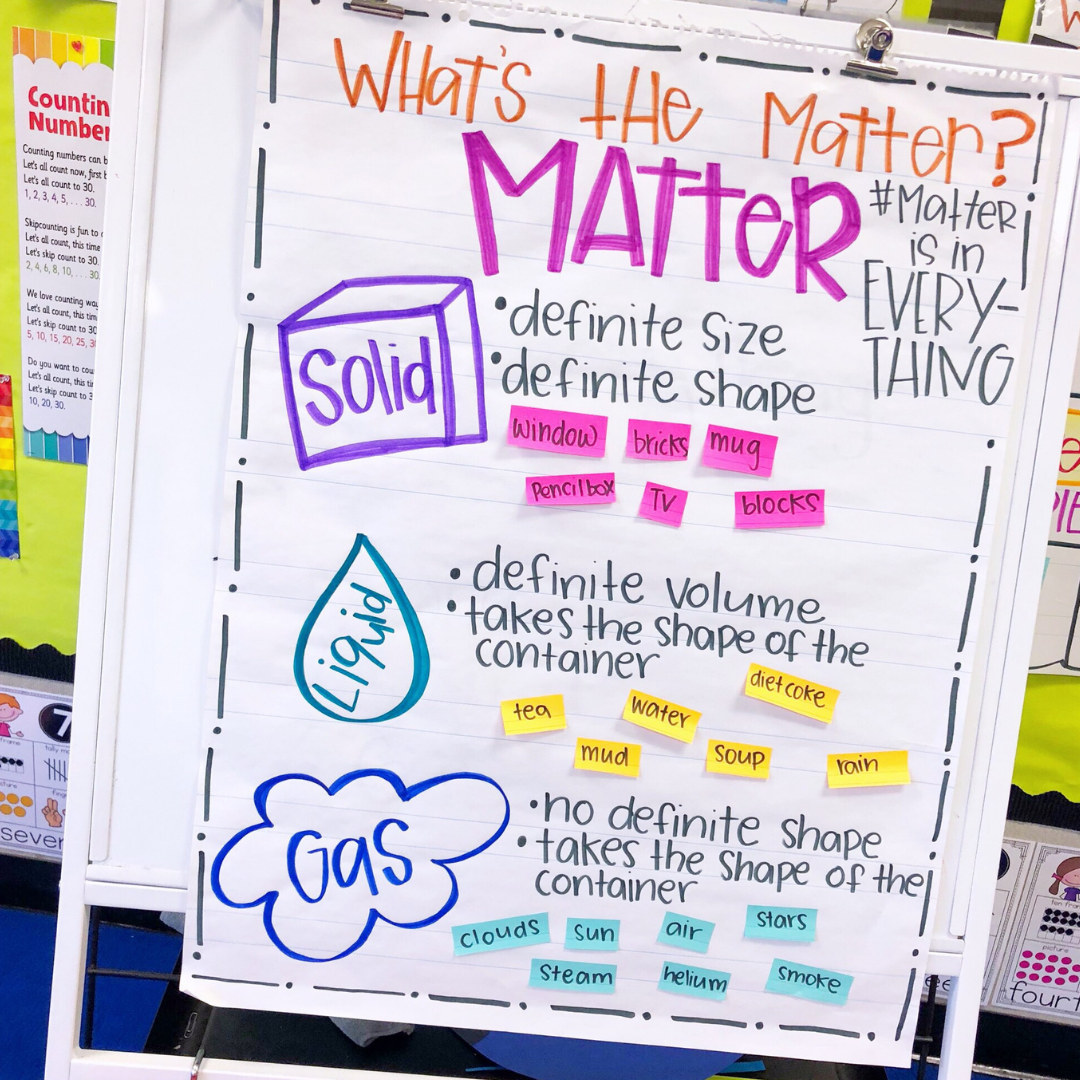 What's the Matter?
MAtteR
#Matter
is in
EVERY-
THING
Solid
•definite size
•definite shape
window bricks mug
Pencil box TV blocks
Liquid
•definite volume
•takes the shape of the
container
diet coke
tea water
mud soup rain
Gas
•no definite shape
•takes the shape of the
container
clouds sun air stars
Steam helium smoke
Countin
Number
Counting numbers can b
Let's all count now, first b
Let's all count to 30.
1, 2, 3, 4, 5, . . . 30.
Skipcounting is fun to
Let's all count, this time
Let's skip count to 30.
2, 4, 6, 8, 10, . . . 30.
We love counting way
Let's all count, this tim
Let's skip count to 30
5, 10, 15, 20, 25, 3
Do you want to cou
Let's all count, this ti
Let's skip count to 3
10, 20, 30.
7
seven
ten fra
picture
fourt